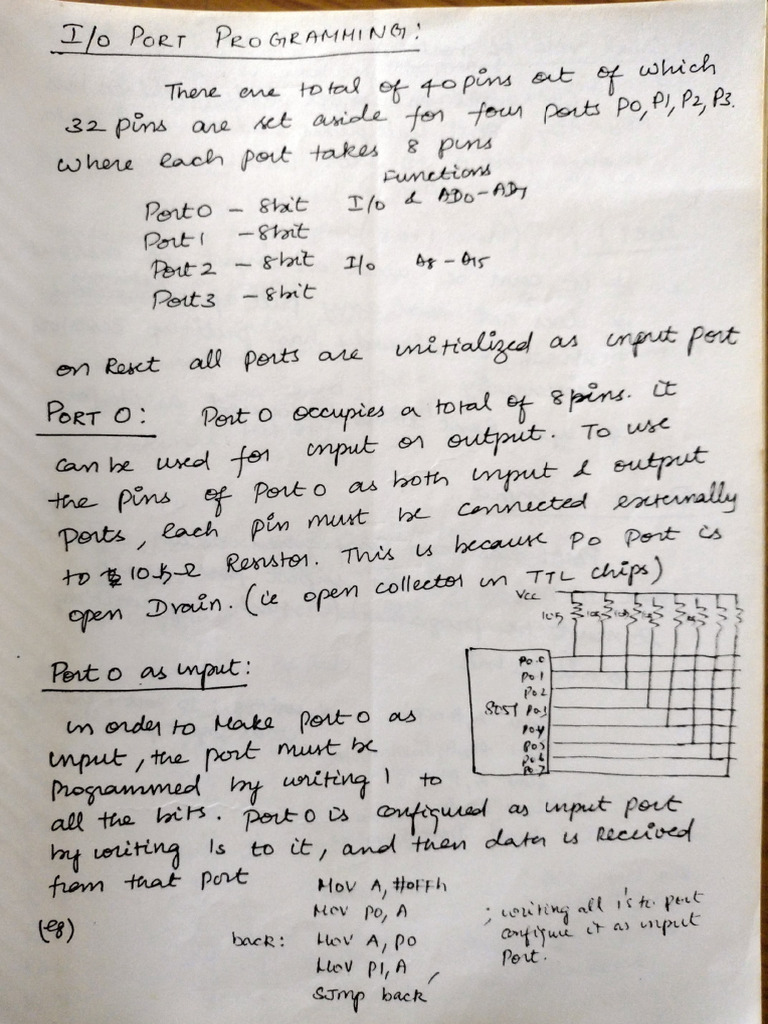 I/O PORT PROGRAMMING:
There are total of 40 pins out of which
32 pins are set aside for four ports P0, P1, P2, P3.
where each port takes 8 pins
Functions
Port 0 - 8bit I/O & AD0-AD7
Port 1 - 8bit
Port 2 - 8bit I/O A8-A15
Port 3 - 8bit
on Reset all ports are initialized as input port
PORT 0: Port 0 occupies a total of 8 pins. it
can be used for input or output. To use
the pins of Port 0 as both input & output
ports, each pin must be connected externally
to 10kΩ Resistor. This is because P0 port is
open Drain. (ie open collector in TTL chips)
Vcc
10k
P0.0
P0.1
P0.2
8051 P0.3
P0.4
P0.5
P0.6
P0.7
Port 0 as input:
in order to Make port 0 as
input, the port must be
programmed by writing 1 to
all the bits. Port 0 is configured as input port
by writing 1s to it, and then data is Received
from that port
(eg)
MOV A, #0FFh
MOV P0, A ; writing all 1's to port
configure it as input
Port.
back: MOV A, P0
MOV P1, A
SJmp back